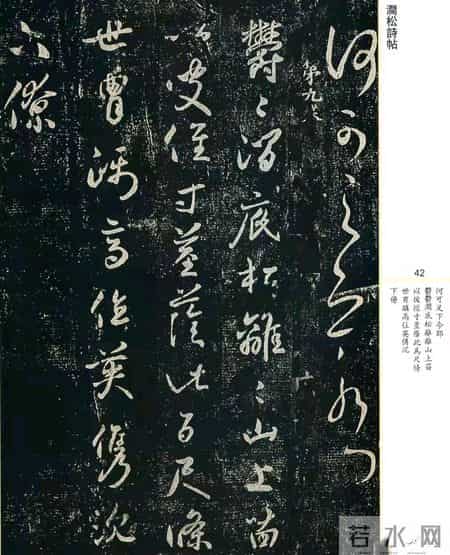 澗松詩帖
何可
第九
鬱〻澗底松離〻山上苗
以彼徑寸莖蔭此百尺條
世胄躡高位英儁沈
下僚
42
何可
鬱鬱澗底松離離山上苗
以彼徑寸莖蔭此百尺條
世胄躡高位英儁沉
下僚
若水网